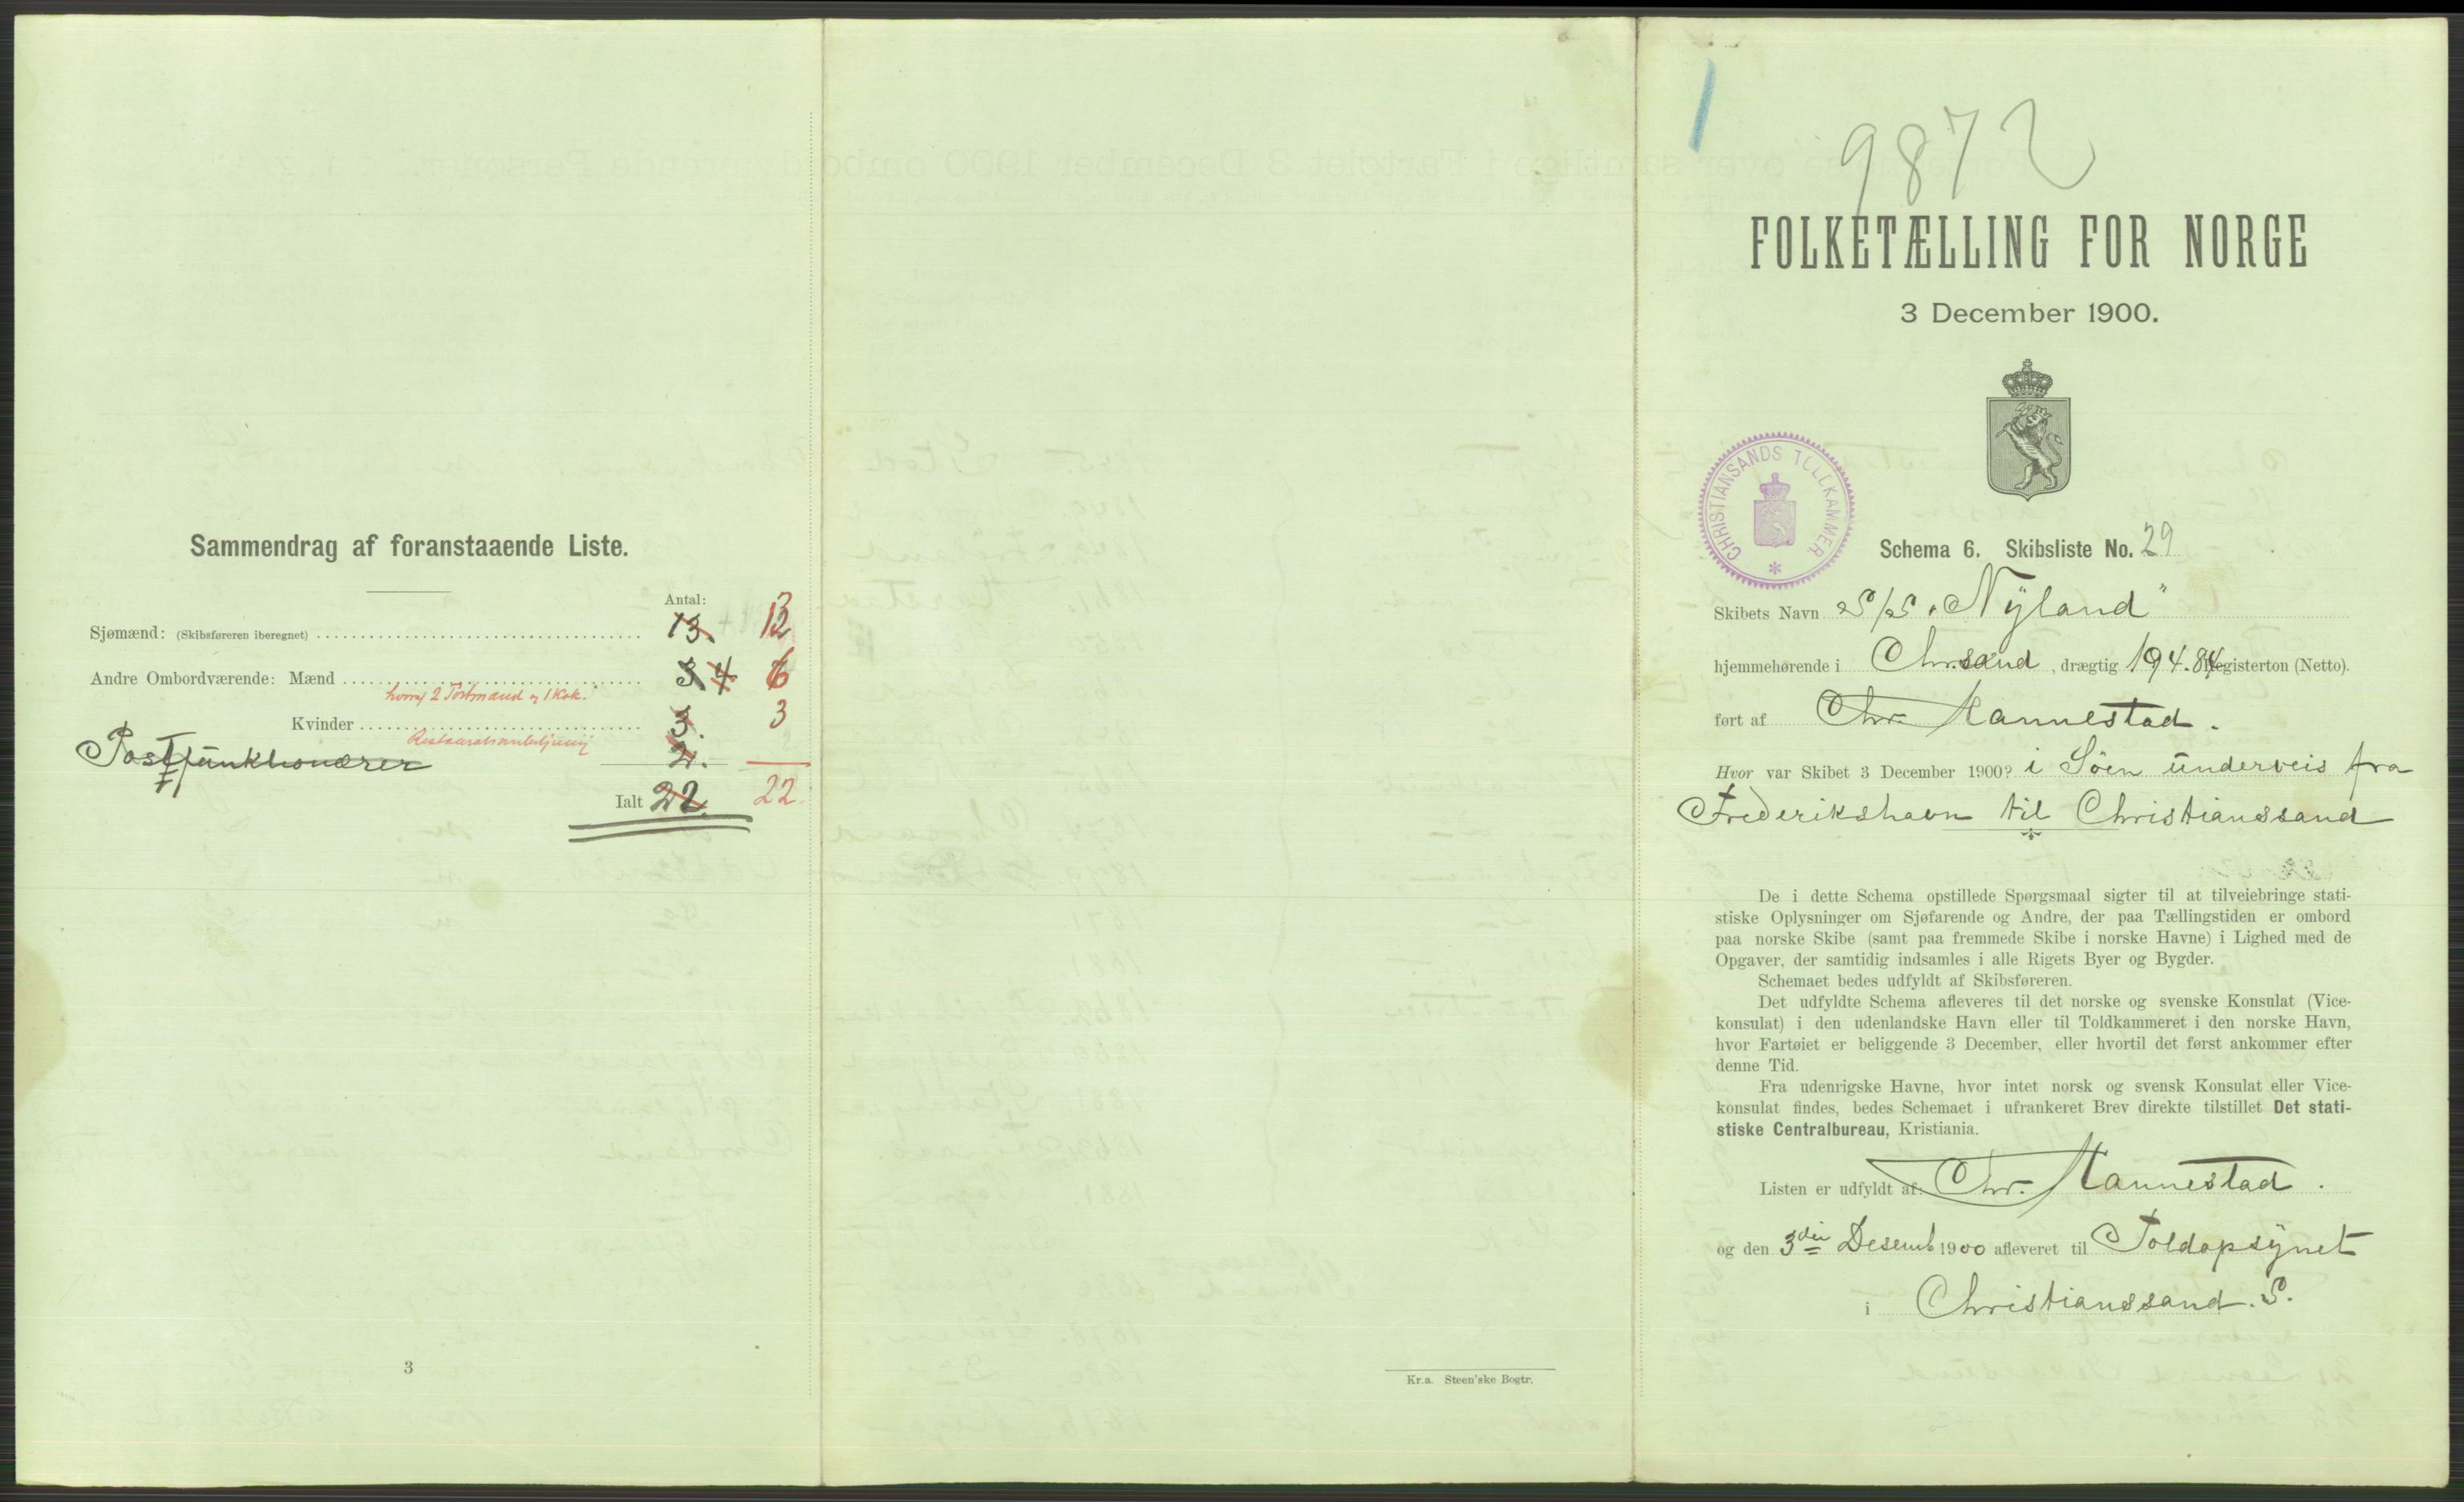 Sammendrag af foranstaaende Liste.
Antal:
Sjømænd: (Skibsføreren iberegnet) 13. 13
Andre Ombordværende: Mænd 3 4 6
hvoraf 2 Postmænd og 1 Kok.
Kvinder 3. 3
Restaurationsbetjening
Postfunktionærer 2.
Ialt 22. 22
3
Kr.a. Steen'ske Bogtr.
9872
FOLKETÆLLING FOR NORGE
3 December 1900.
CHRISTIANSANDS TOLLKAMMER
Schema 6. Skibsliste No. 29
Skibets Navn S/S "Nyland"
hjemmehørende i Chr.sand, drægtig 194.84 Registerton (Netto).
ført af Chr. Mannestad.
Hvor var Skibet 3 December 1900? i Søen underveis fra
Frederikshavn til Christianssand
De i dette Schema opstillede Spørgsmaal sigter til at tilveiebringe stati-
stiske Oplysninger om Sjøfarende og Andre, der paa Tællingstiden er ombord
paa norske Skibe (samt paa fremmede Skibe i norske Havne) i Lighed med de
Opgaver, der samtidig indsamles i alle Rigets Byer og Bygder.
Schemaet bedes udfyldt af Skibsføreren.
Det udfyldte Schema afleveres til det norske og svenske Konsulat (Vice-
konsulat) i den udenlandske Havn eller til Toldkammeret i den norske Havn,
hvor Fartøiet er beliggende 3 December, eller hvortil det først ankommer efter
denne Tid.
Fra udenrigske Havne, hvor intet norsk og svensk Konsulat eller Vice-
konsulat findes, bedes Schemaet i ufrankeret Brev direkte tilstillet Det stati-
stiske Centralbureau, Kristiania.
Listen er udfyldt af: Chr. Mannestad.
og den 3die Desemb 1900 afleveret til Toldopsynet
i Christianssand. S.